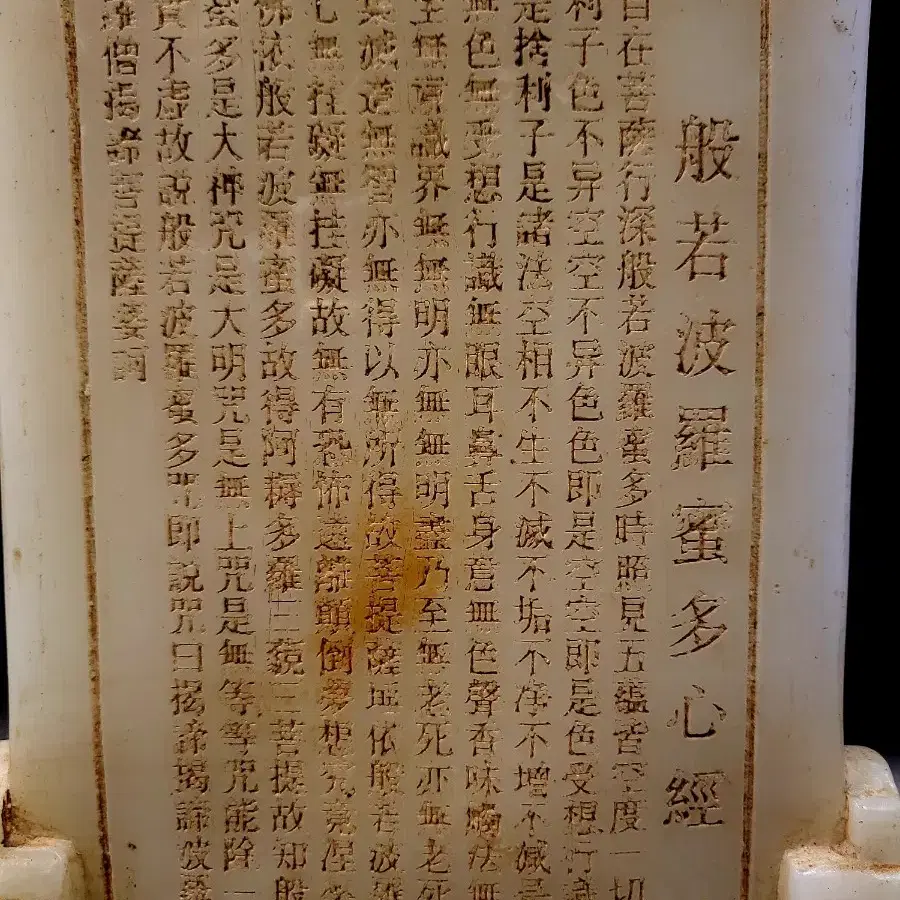 般若波羅蜜多心經
自在菩薩行深般若波羅蜜多時照見五蘊皆空度一切
利子色不异空空不异色色即是空空即是色受想行識
是捨利子是諸法空相不生不滅不垢不净不增不减是
無色無受想行識無眼耳鼻舌身意無色聲香味觸法無
至無意識界無無明亦無無明盡乃至無老死亦無老死
集滅道無智亦無得以無所得故菩提薩埵依般若波羅
心無挂礙無挂礙故無有恐怖遠離顛倒夢想究竟涅槃
佛依般若波羅蜜多故得阿耨多羅三藐三菩提故知般
蜜多是大神咒是大明咒是無上咒是無等等咒能除一
實不虛故説般若波羅蜜多咒即説咒曰揭諦揭諦波羅
羅僧揭諦菩提薩婆訶